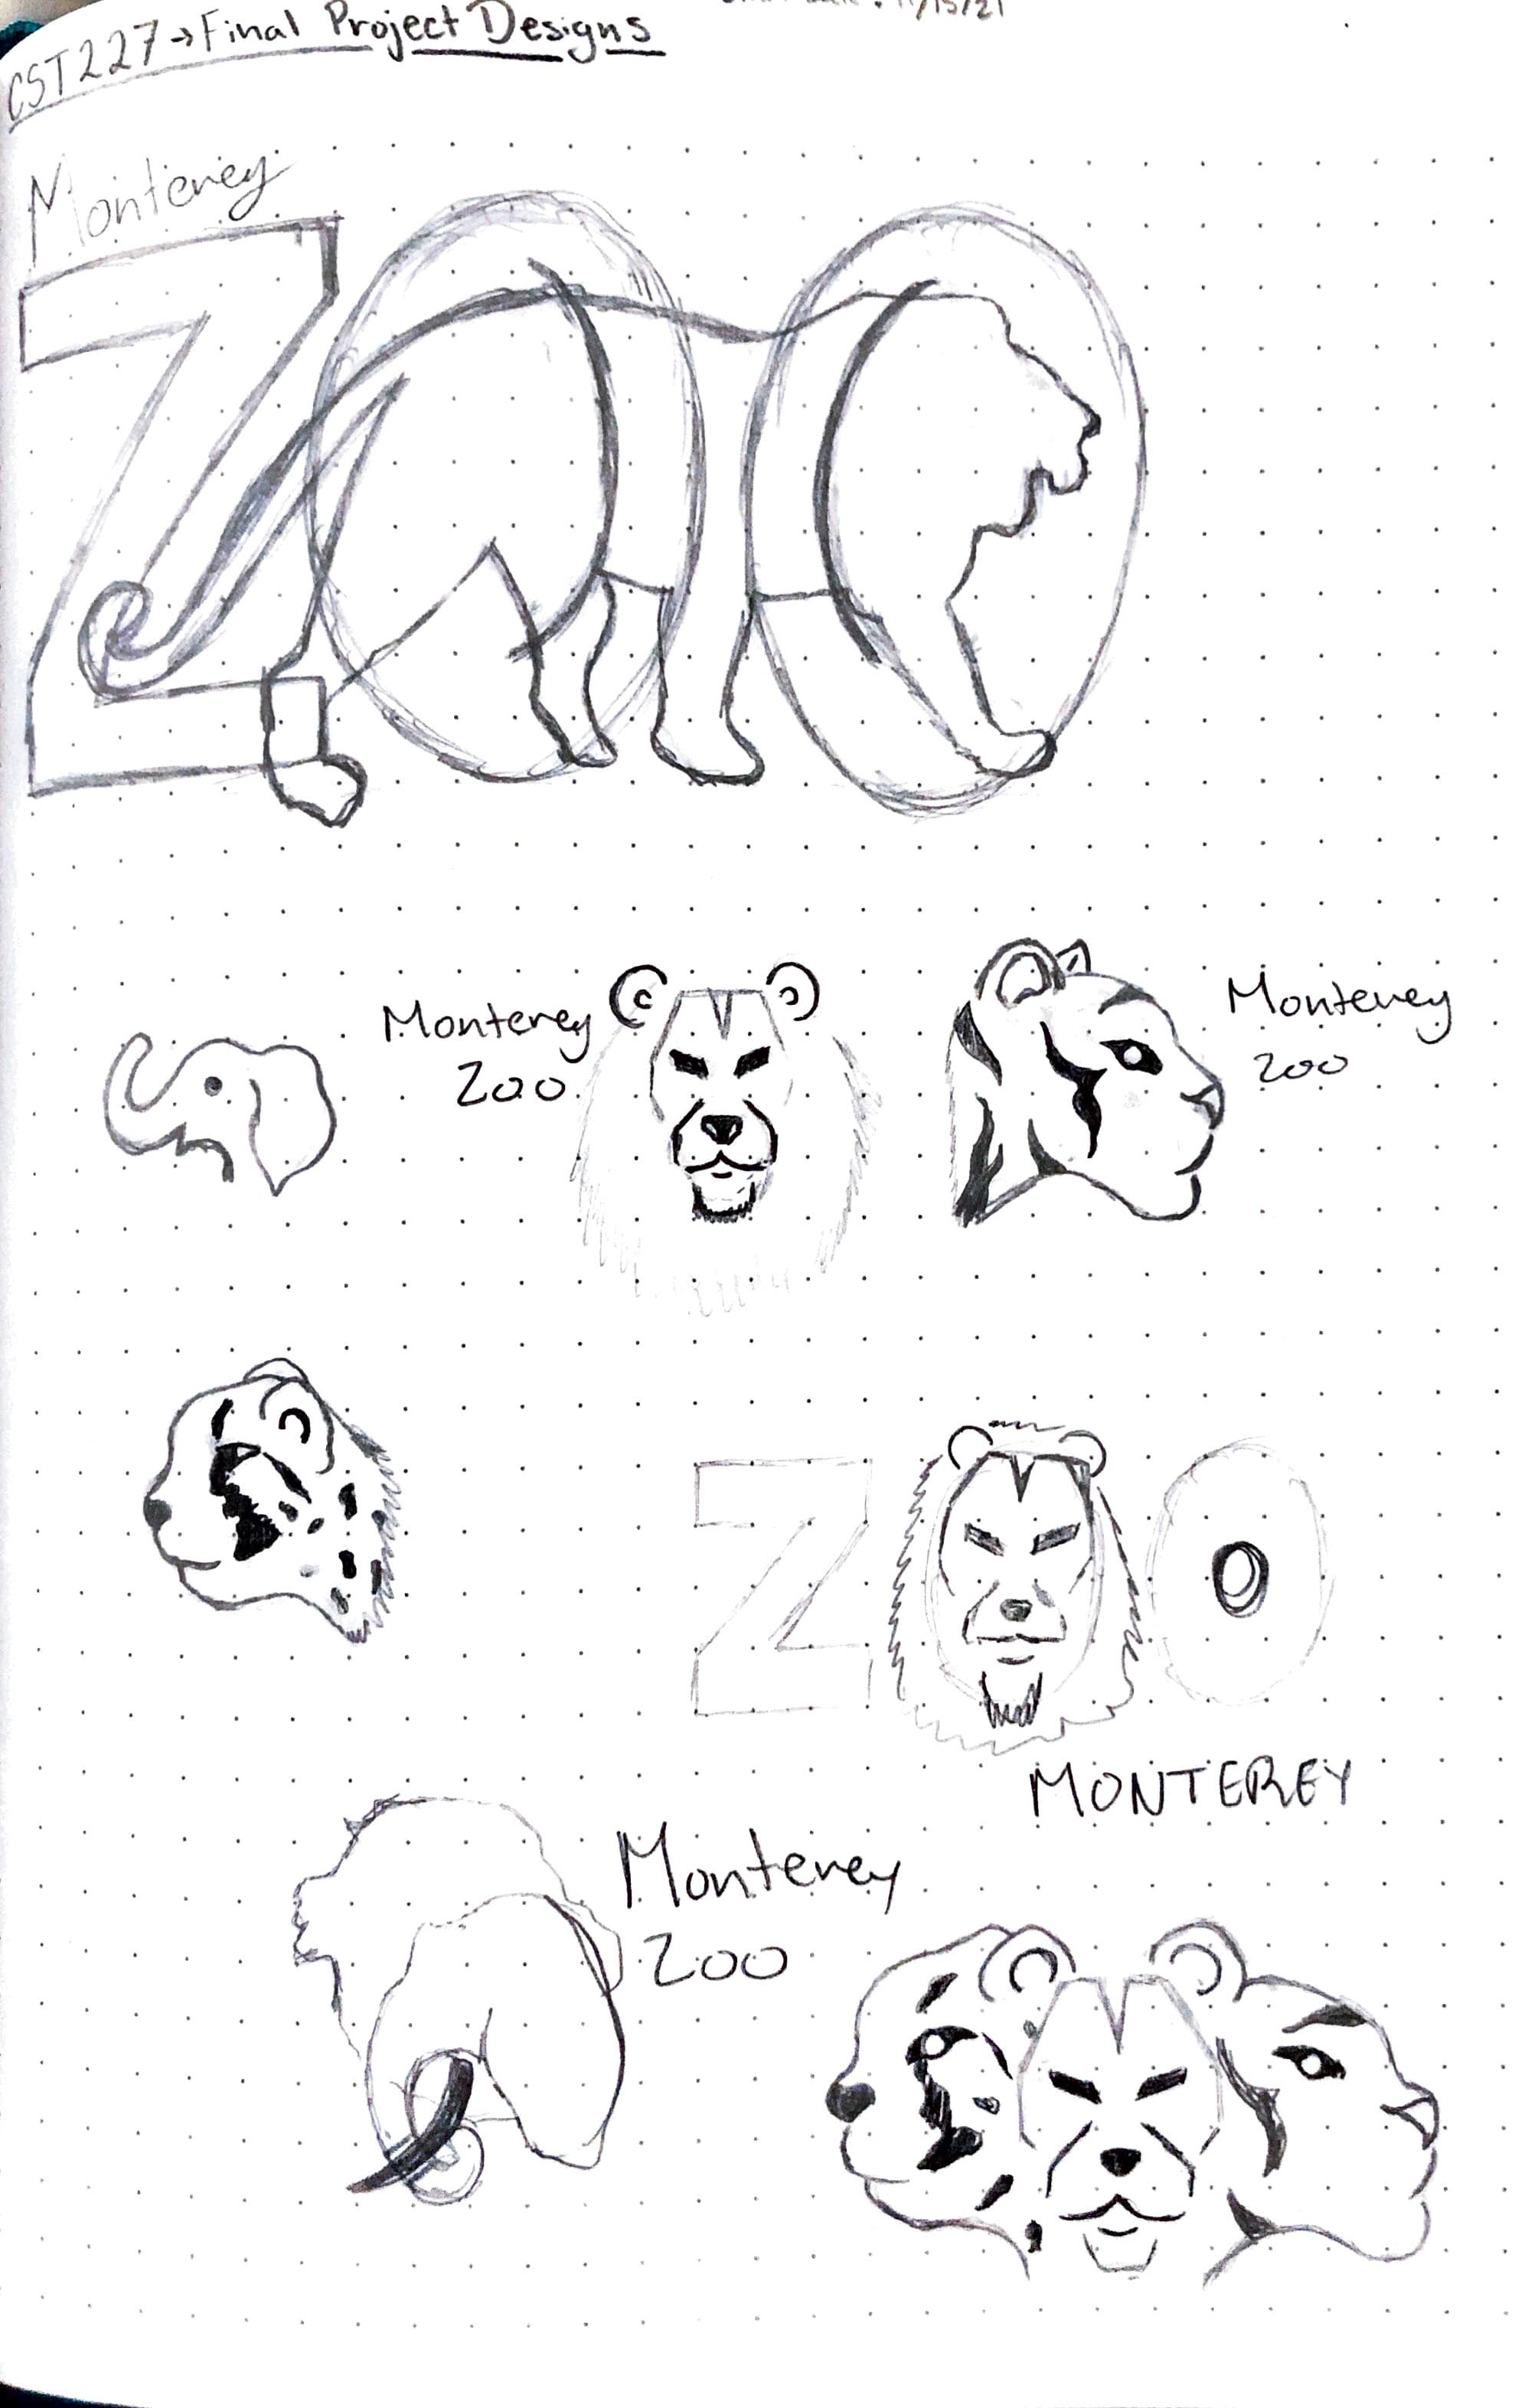 CST227→Final Project Designs
11/15/21
Monterey
ZOO
Monterey
Zoo
Monterey
Zoo
ZOO
MONTEREY
Monterey
Zoo